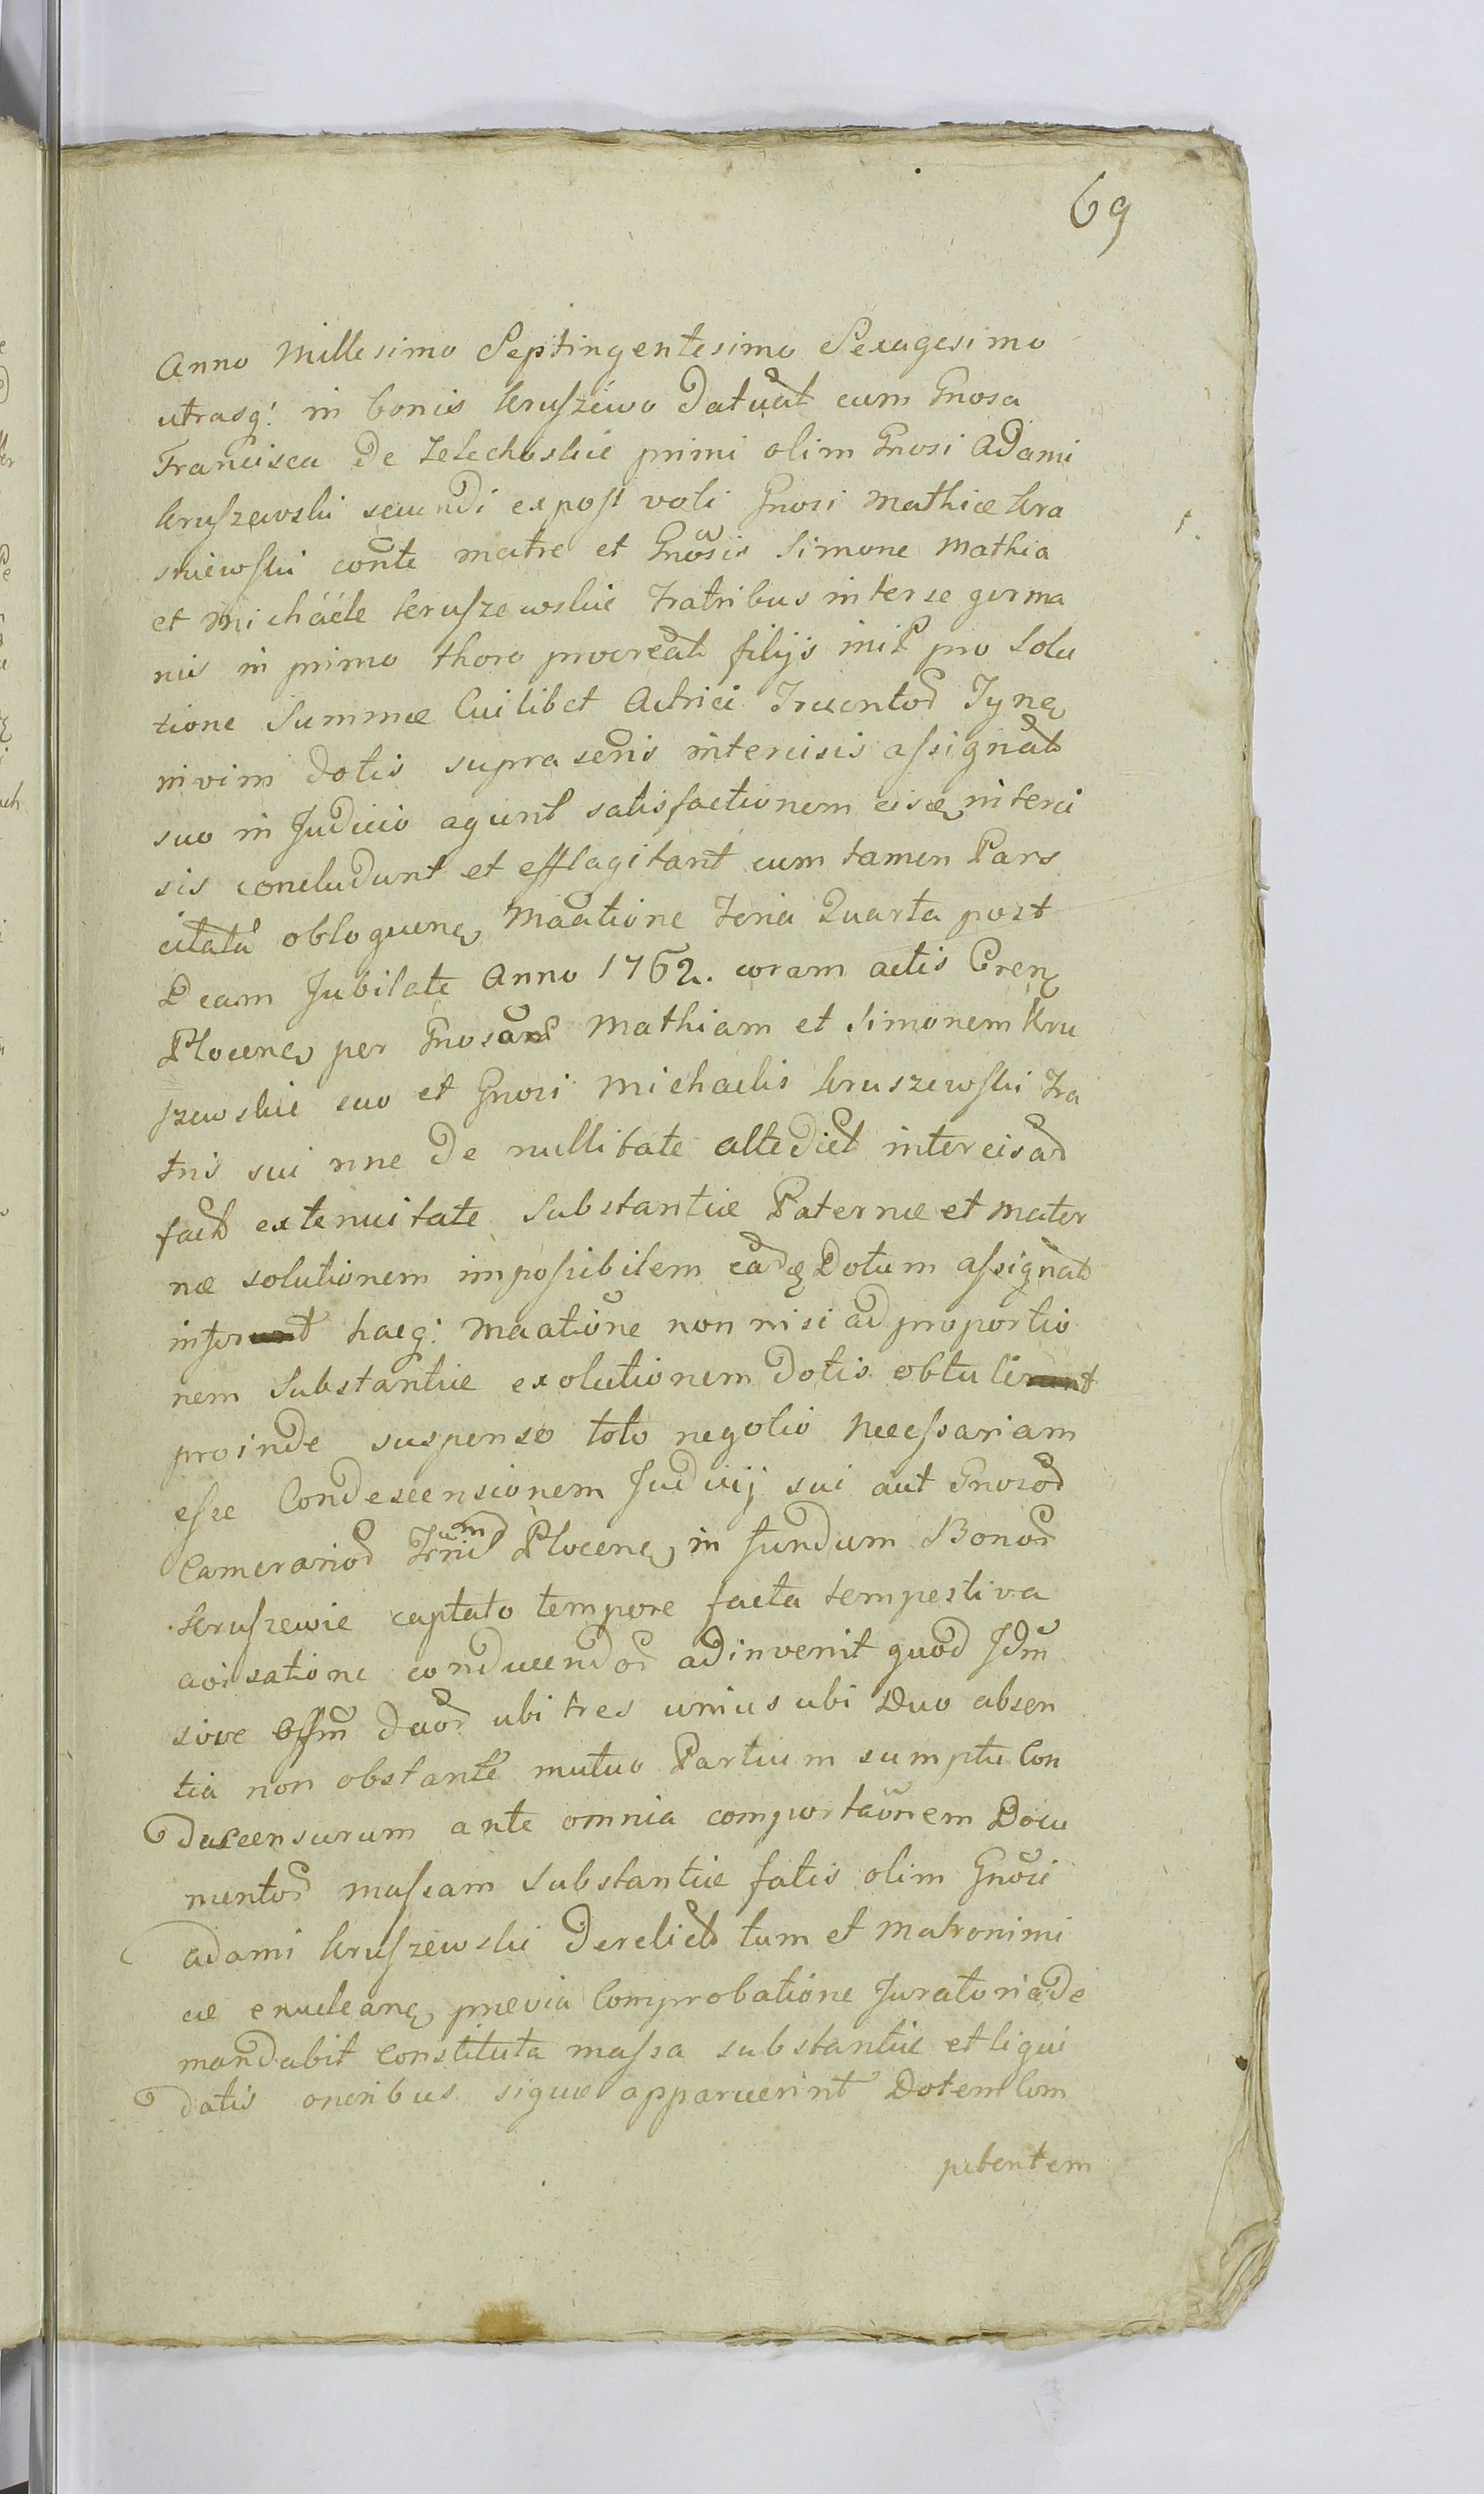 69
Anno Millesimo Septingentesimo Sexagesimo
utrasq: in bonis Kruszewo Datuat cum Gnosa
Francisca De Zelechoskie primi olim Gnosi Adami
Kruszewski secundi expost voti Gnosi Mathiæ Kra
sniewski conte matre et Gnosis Simone Mathia
et Michaele Kruszewskie Fratribus interse germa
nis in primo thoro procreatis filijs init pro Solu
tione Summæ Cuilibet Actrici Trecentor
nivim dotis suprasenis intercisis assignat
suo in Judicio agunt satisfactionem eisq interci
sis concludunt et efflagitant cum tamen Pars
citata obloquens Maatione Feria Quarta post
Dcam Jubilate Anno 1762. coram actis Cren
Plocens per Gnosos Mathiam et Simonem Kru
szewskie suo et Gnosi Michaelis Kruszewski Fra
tris sui nne De nullitate altedict intercisar
fact extenuitate Substantiæ Paternæ et Mater
næ solutionem impossibilem eadq Dotum assignat
inferunt haeq: Maatione non nisi ad proportio
nem Substantiæ exolutionem Dotis obtulerunt
proinde suspenso toto negotio Necessariam
esse Condescensionem Judicij sui aut Gnosor
Camerarior Plocens in fundum Bonor
Kruszewie captato tempore facta tempestiva
avisatione conducendor adinvenit quod Idm
sive duor ubi tres unius ubi Duo absen
tia non obstante mutuo Partium sumptu Con
descensurum ante omnia comportaonem Docu
mentor massam Substantiæ fatis olim Gnosi
Adami Kruszewski Derelict tum et Matronimi
cæ enucleans prævia Comprobatione Juratoria De
mandabit Constituta massa substantiæ et liqui
datis oneribus siquæ apparuerint Dotem Com
petentem